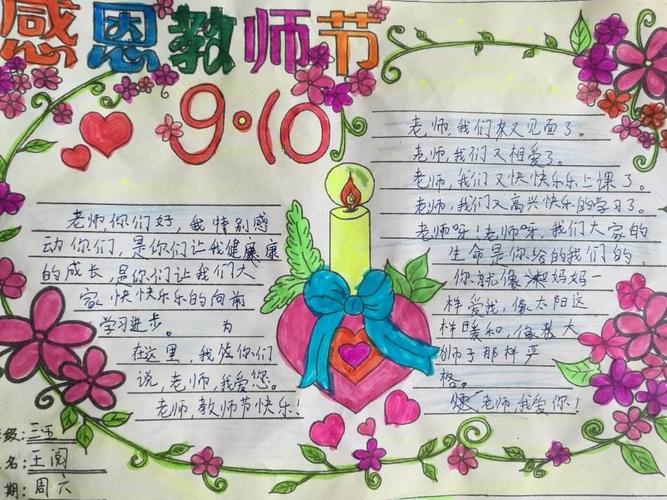 感恩教师节
9·10
老师,你们好,我特别感
动你们,是你们让我健康康
的成长,是你们让我们大
家快快乐乐的向前
学习进步。为
在这里,我你们
说,老师,我爱您。
老师,教师节快乐!
老师,我们又见面了。
老师,我们又相爱了。
老师,我们又快快乐乐上课了。
老师,我们又高兴快乐的学习了。
老师呀!老师呀,我们大家的
生命是你给的我们的
你就像妈妈一
样爱我,像太阳这
样暖和,像大
狮子那样严
格。
老师,我爱你!
级:三五
名:王阅
期:周六